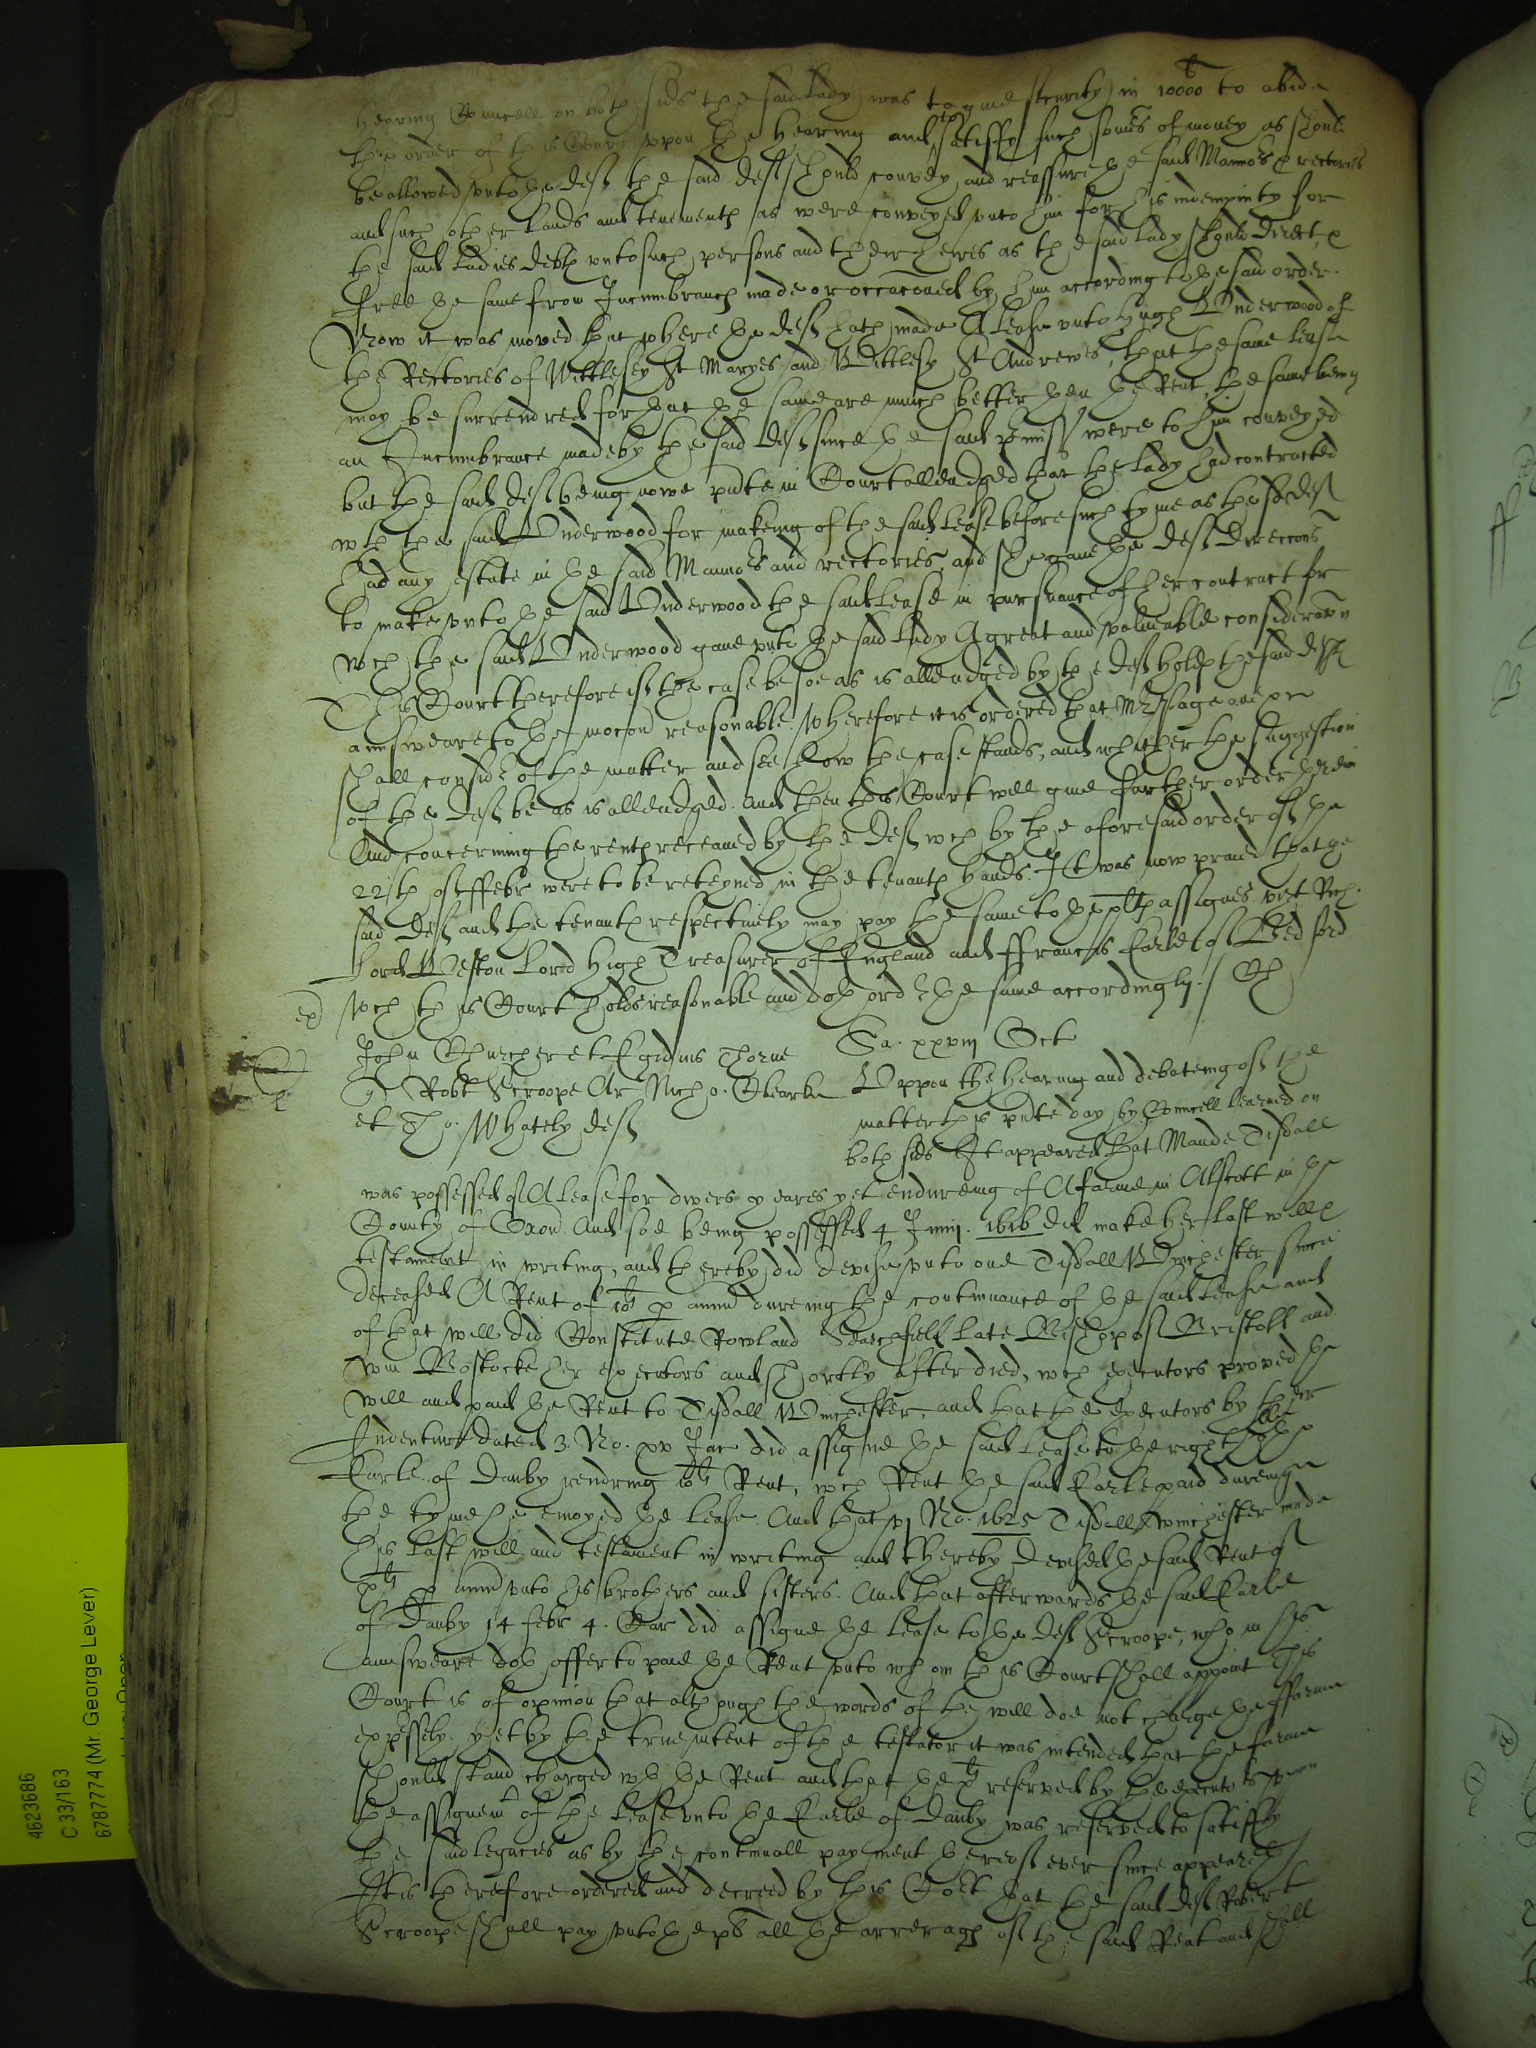 hearing Councell on both sids the said Lady was to giue security in 10000li to abide
the order of this Court vpon the hearing and to satisfy such somes of money as should
be allowed vnto ye deft the said deft should convey and reassure ye said Mannors & rectories
and such other lands and tenements as were conveyed vnto him for his indempnity for
the said Ladies debts vnto such persons and their heires as the said Lady should direct &
free ye same from Incumbrances made or occaconed by him according to ye said order.
Now it was moved that where ye deft hath made A lease vnto Hugh Vnderwood of
the Rectories of Wittlesey St Maryes and Wittlesy St Andrewes, that the same lease
may be surrendred for that ye same are much better then ye Rent, the same being
an Incumbrance made by the said deft since ye said pmiss were to him conveyed
but the said deft being nowe pnte in Court alleadged that the Lady had contracted
wth the said Vnderwood for making of the said lease before such tyme as the sd deft
had any estate in ye said Mannors and rectories, and she gaue ye deft direccons
to make vnto ye said Vnderwood the said lease in pursuance of her contract for
wch the said Vnderwood gaue vnto ye said Lady A great and valueable consideracon
This Court therefore if the case be soe as is alleadged by the deft holds the said defts
answeare to ye mocon reasonable. Wherefore it is ordered that Mr Page
shall consider of the matter and see how the case stands, and whither the suggestion
of the deft be as is alleadged. And then this Court will giue further order therein
And concerning the rents receaued by the deft wch by the aforesaid order of ye
22th of ffebr were to be reteyned in the tenants hands. It was now praied that ye
said deft and the tenants respectiuely may pay the same to ye plts assignes vizt Rich:
Lord Weston Lord High Treasurer of England and ffrancis Earle of Bedford
wch this Court holds reasonable and doth order ye same accordingly./
ex
John Churcher et Egidius Thorne
Robt Scroope Ar Nicho. Clearke
et Tho. Whately deft
Sa. xxviij Oct
Vppon the hearing and debateing of the
matter this pnte day by Councell learned on
both sids It appeared that Maude Tisdall
was possessed of A lease for divers yeares yet endureing of A farme in Alscott in ye
County of Oxon. And soe being possessed 4 Junij. 1616 did make her last will &
testament in writing, and thereby did devise vnto one Tisdall Winchester since
deceased A Rent of 10li p annu dureing the continuance of ye said lease and
of that will did Constitute Rowland Searchfield late Bishopp of Bristoll and
Wm Bostocke her executors and shortly after died, wch executors proved ye
will and paid ye Rent to Tisdall Winchester, and that the executors by their
Indenture dated 3. No. xv Jac did assigne ye said lease to ye right hoble ye
Earle of Danby rendring 10li Rent, wch Rent ye said Earle paid dureing
the tyme he enioyed ye lease. And that vj No. 1625 Tisdall Winchester made
his last will and testament in writing and thereby devised ye said Rent of
xli p annu vnto his brothers and sisters. And that afterwards ye said Earle
of Danby 14 febr 4. Car did assigne ye lease to ye deft Scroope, who in his
answeare doth offer to paie ye Rent vnto whom this Court shall appoint This
Court is of opinion that although the words of the will doe not charge ye ffarme
expressely. yet by the true intent of the testator it was intended that the farme
should stand charged wth ye Rent and that ye xli reserved by the executors vpon
the assignemt of the lease vnto ye Earle of Danby was reserved to satisfy
the said legacies as by the continuall payment thereof ever since appeareth
It is therefore ordered and decreed by this Cort that the said deft Robert
Scroope shall pay vnto ye plts all ye arrerags of the said Rent and shall
4623686
C 33/163
6787774 (Mr. George Lever)